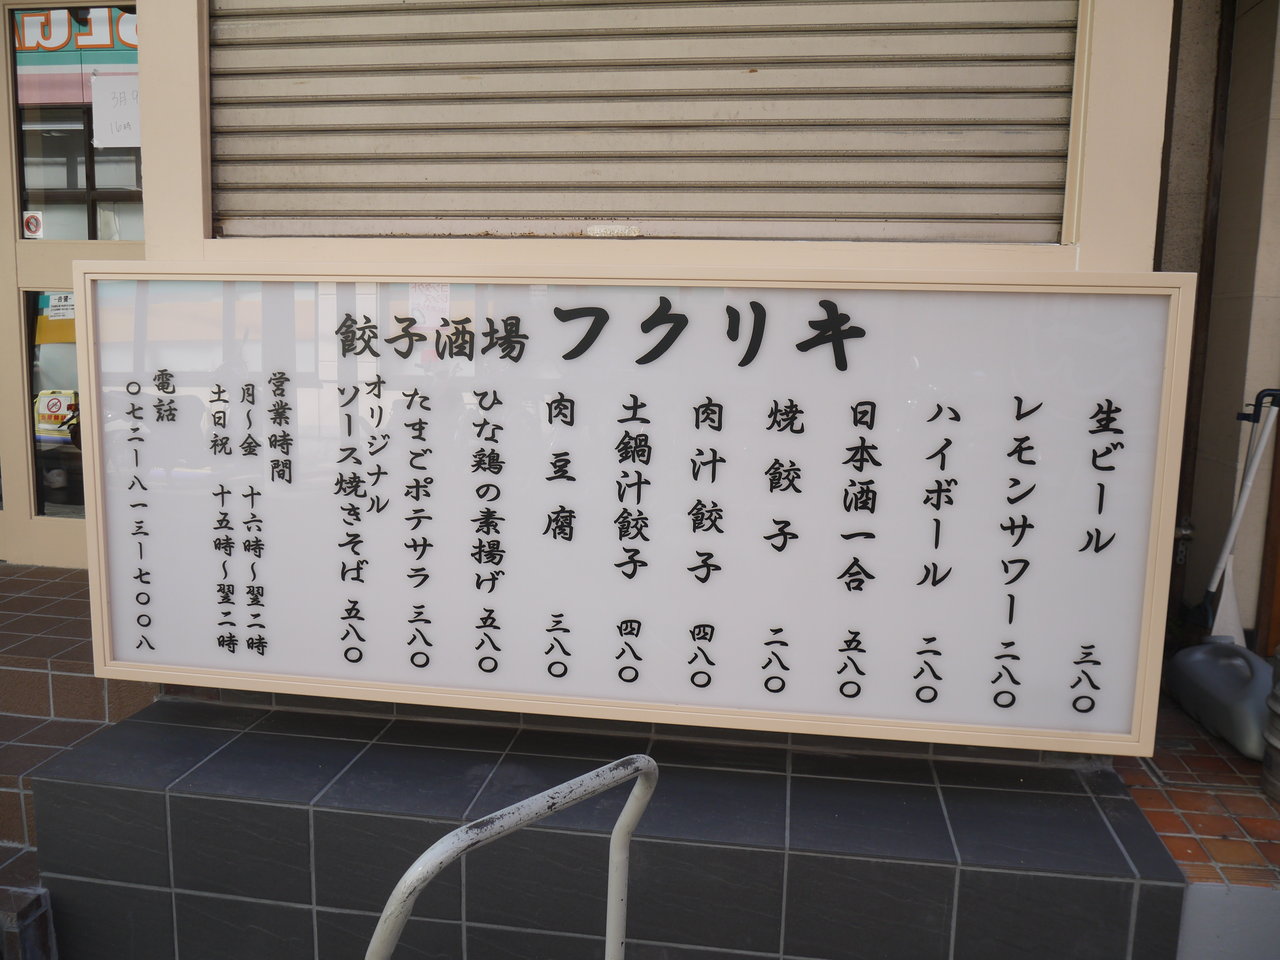 餃子酒場 フクリキ
生ビール 三八〇
レモンサワー 二八〇
ハイボール 二八〇
日本酒一合 五八〇
焼餃子 二八〇
肉汁餃子 四八〇
土鍋汁餃子 四八〇
肉豆腐 三八〇
ひな鶏の素揚げ 五八〇
たまごポテサラ 三八〇
オリジナル
ソース焼きそば 五八〇
営業時間
月〜金 十六時〜翌二時
土日祝 十五時〜翌二時
電話
〇七二ー八一三ー七〇〇八
3月9
16時